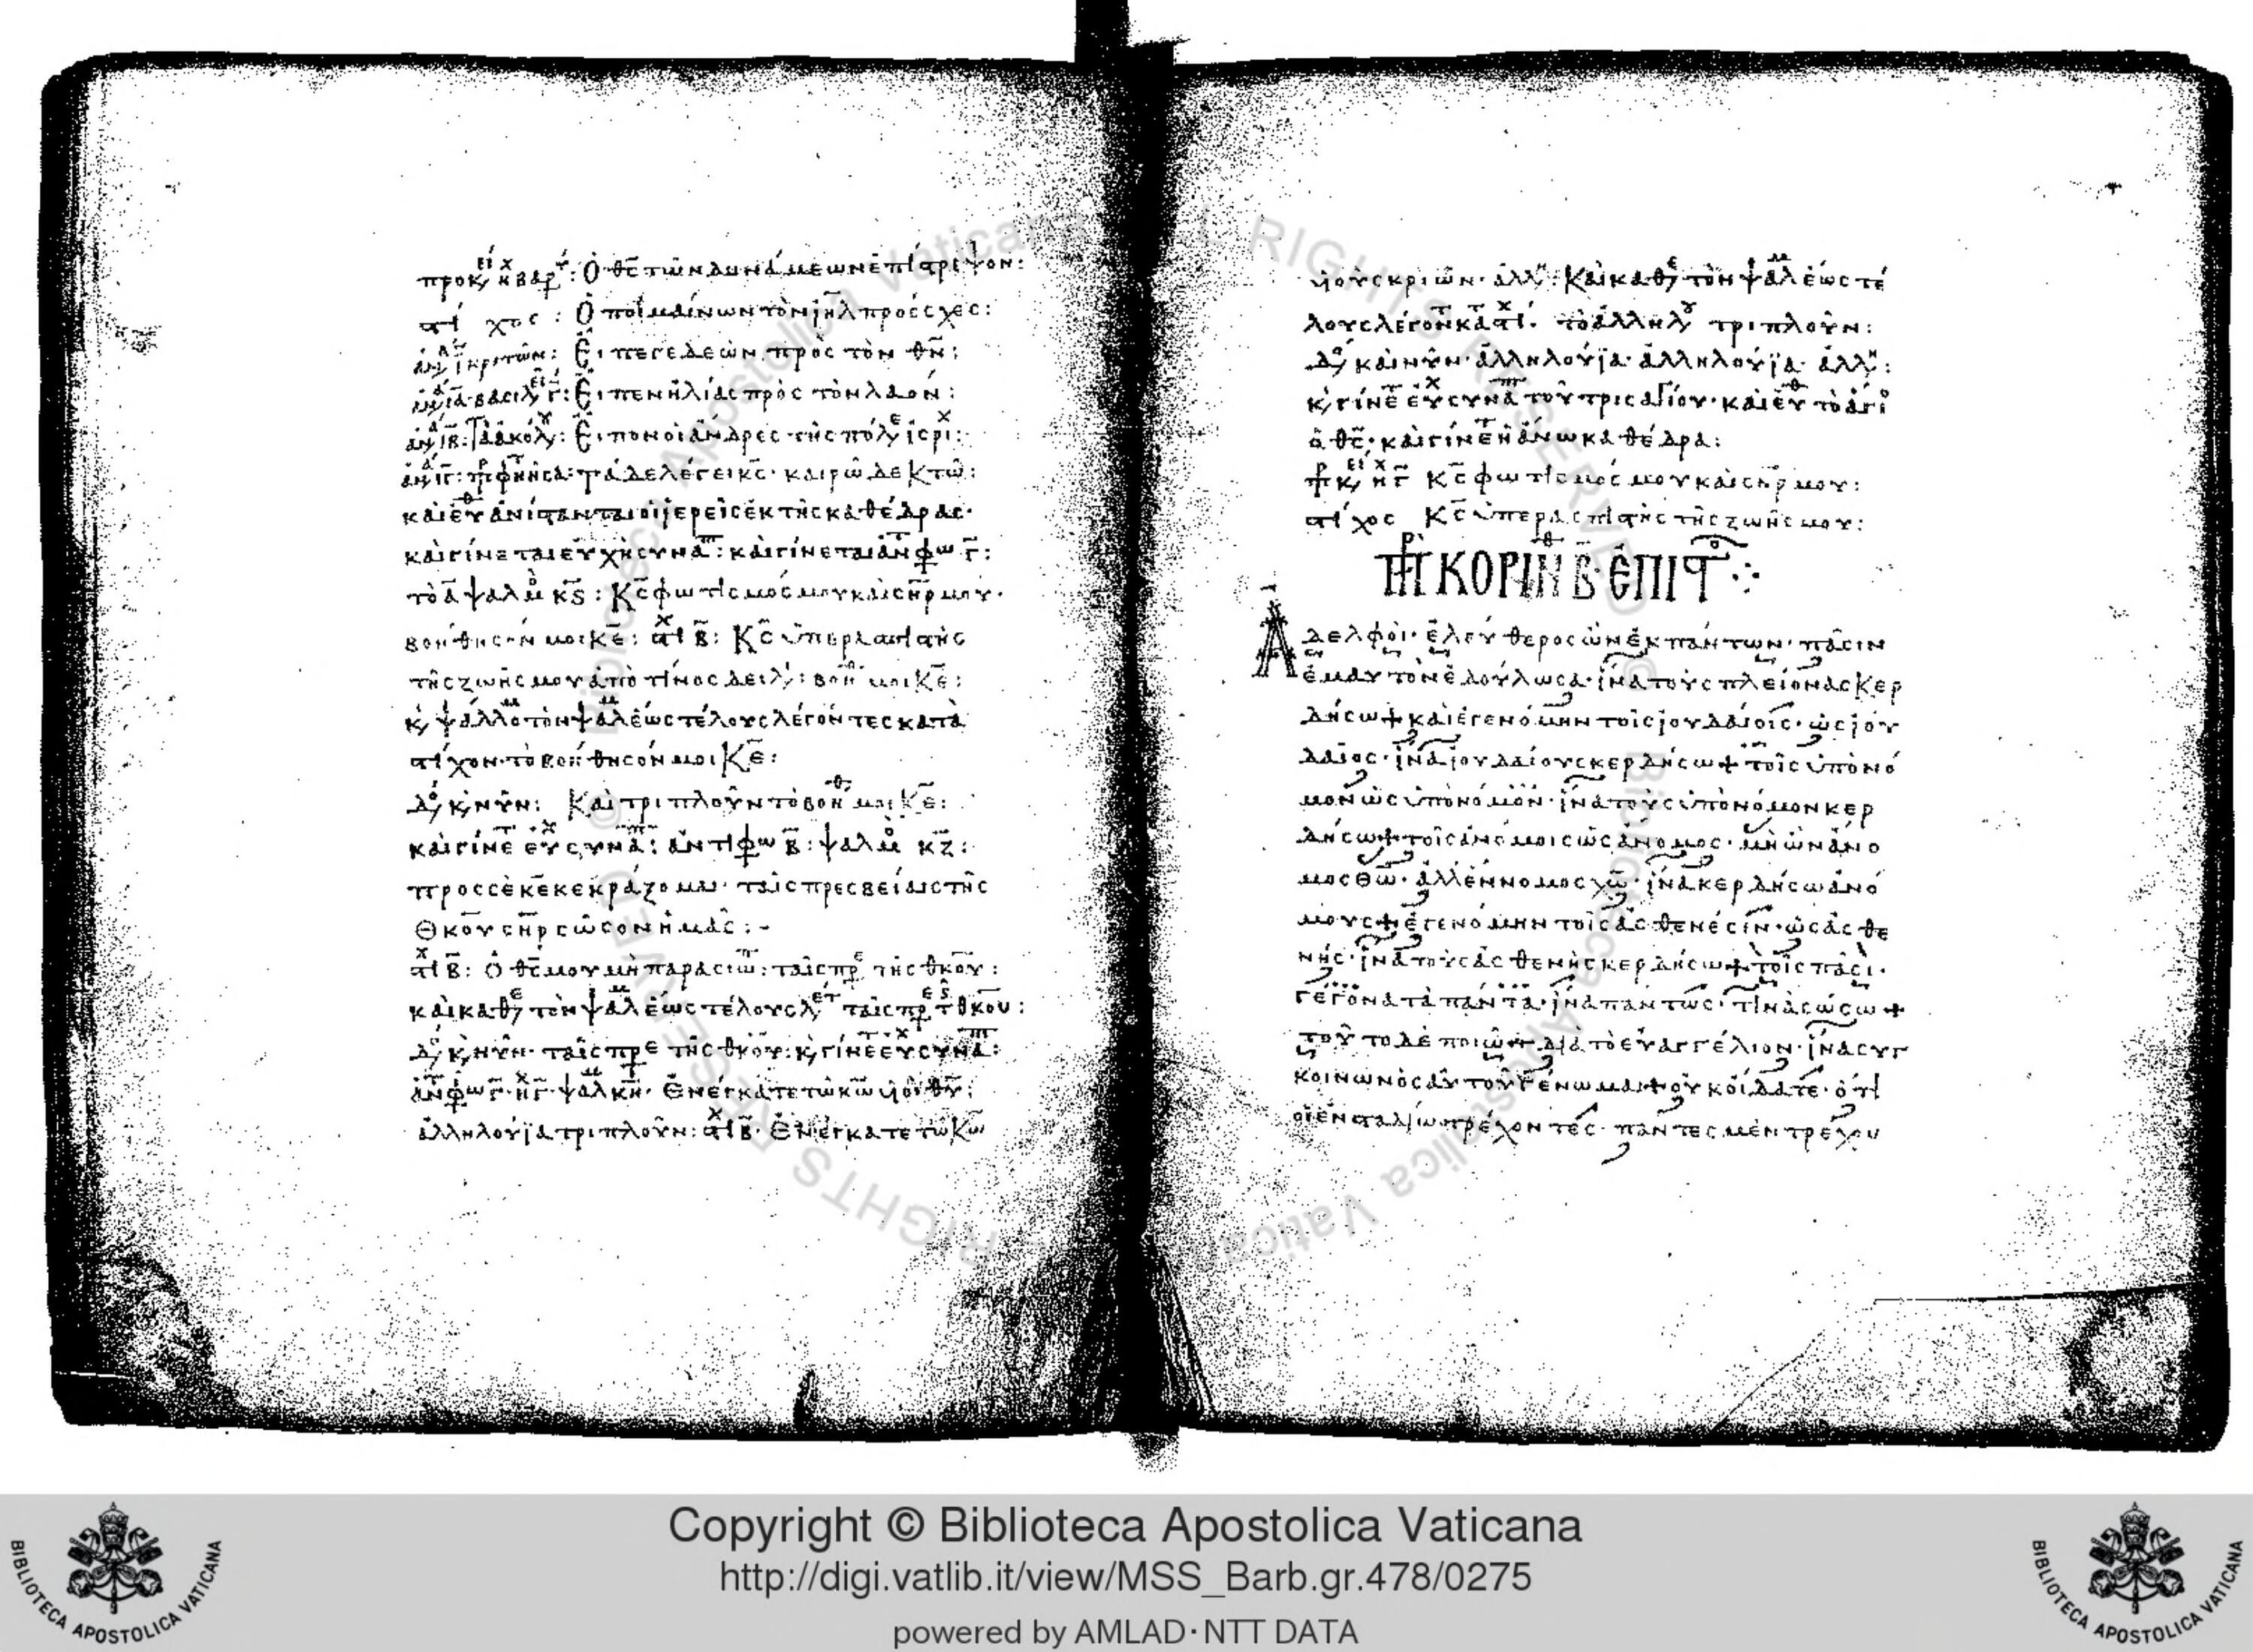 προκ, ηχ βαρ: Ὁ θς τῶν δυνάμεων ἐπίστρεψον:
στίχος: Ὁ ποιμαίνων τὸν ιηλ πρόσχες:
κριτῶν: Εἶπε γεδεὼν πρὸς τὸν θν:
βασιλ γ: Εἶπεν ἠλίας πρὸς τὸν λαόν:
Εἶπον οἱ ἄνδρες τῆς πόλ
τάδε λέγει κς· καιρῶ δεκτῶ:
καὶ εὐθ ἀνίστανται οἱ ἱερεῖς ἐκ τῆς καθέδρας·
καὶ γίνεται εὐχὴ συναπ: καὶ γίνεται ἀντφω γ:
τὸ α ψαλμ κς: Κς φωτισμός μου καὶ σηρ μου·
βοήθησόν μοι κε: στιχ β: Κς ὑπερασπιστὴς
τῆς ζωῆς μου ἀπὸ τίνος δειλ: βοηθ μοι Κε:
κ, ψάλλο τὸν ψαλμ ἕως τέλους λέγοντες κατὰ
στίχον· τὸ βοήθησόν μοι Κε:
Δο κ, νῦν: Καὶ τριπλοῦν τὸ βοηθ μοι Κε:
καὶ γίνετ εὐχ συναπ: ἀντιφω β: ψαλμ κζ:
προς σὲ κε κεκράξομαι· ταῖς πρεσβείαις τῆς
Θκου σηρ σῶσον ἡμᾶς:-
στιχ β: Ὁ θς μου μὴ παρασιω: ταῖς πρε τῆς θκου:
καὶ καθε τὸν ψαλμ ἕως τέλους λετ ταῖς πρε τ θκου:
Δο κ, νῦν· ταῖς πρε τῆς θκου: κ, γίνετ εὐχ συναπ:
ἀντφω γ· ηχ γ· ψαλμ κη· Ἐνέγκατε τῶ κω υἱοὶ θυ:
ἀλληλούϊα τριπλοῦν: στιχ β· Ἐνέγκατε τῶ Κω
υἱοὺς κριῶν· ἀλλη: Καὶ καθε τὸν ψαλμ ἕως τέ
λους λέγοντ κατ στιχ. τὸ ἀλληλου τριπλοῦν:
Δο καὶ νῦν· ἀλληλούϊα· ἀλληλούϊα· ἀλλη:
κ, γίνετ εὐχ συναπ τοῦ τρισαγίου· καὶ εὐθ τὸ ἅγιο
ὁ θς· καὶ γίνετ ἡ ἄνω καθέδρα:
πρκ, ηχ γ Κς φωτισμός μου καὶ σηρ μου:
στίχος Κς ὑπερασπιστὴς τῆς ζωῆς μου:
ΠΡ ΚΟΡΙΝΘ Β ΕΠΙΣΤΟ
Ἀδελφοὶ· ἐλεύθερος ὢν ἐκ πάντων· πᾶσιν
ἐμαυτὸν ἐδούλωσα· ἵνα τοὺς πλείονας κερ
δήσω+ καὶ ἐγενόμην τοῖς ἰουδαίοις· ὡς ἰου
δαῖος· ἵνα ἰουδαίους κερδήσω+ τοῖς ὑπὸ νό
μον ὡς ὑπὸ νόμον· ἵνα τοὺς ὑπὸ νόμον κερ
δήσω+ τοῖς ἀνόμοις ὡς ἄνομος· μὴ ὢν ἄνο
μος θω· ἀλλ' ἔννομος χω· ἵνα κερδήσω ἀνό
μους+ ἐγενόμην τοῖς ἀσθενέσιν· ὡς ἀσθε
νής· ἵνα τοὺς ἀσθενῆς κερδήσω+ τοῖς πᾶσι·
γέγονα τὰ πάντα· ἵνα πάντως· τινὰς σώσω+
τοῦτο δὲ ποιῶ+ διὰ τὸ εὐαγγέλιον· ἵνα συγ
κοινωνὸς αὐτοῦ γένωμαι+ οὐκ οἴδατε· ὅτι
οἱ ἐν σταδίω τρέχοντες· πάντες μὲν τρέχου
Copyright © Biblioteca Apostolica Vaticana
http://digi.vatlib.it/view/MSS_Barb.gr.478/0275
powered by AMLAD·NTT DATA
BIBLIOTECA APOSTOLICA VATICANA
BIBLIOTECA APOSTOLICA VATICANA